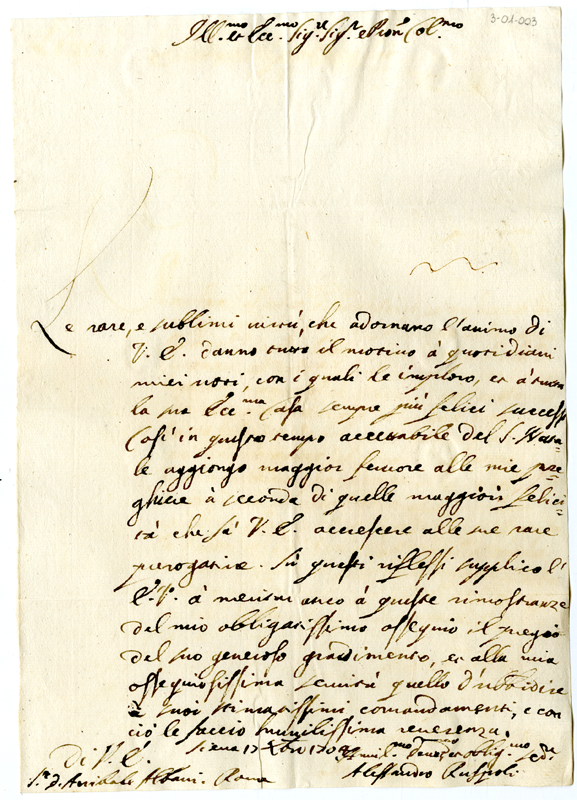 3-01-003
Ill.mo et Ecc.mo Sig.re Sig.r e Pron. Col.mo
Le rare, e sublimi virtù, che adornano l'animo di
V. E. danno tutto il motivo à quotidiani
miei voti, con i quali le imploro, et à tutta
la sua Ecc.ma Casa sempre più felici successi
Così in questo tempo accettabile del S. Nata=
le aggiongo maggior fervore alle mie pre=
ghiere à seconda di quelle maggiori felici=
tà che sà V. E. accrescere alle sue rare
prerogative. Sù questi riflessi supplico l'
E. V. à meritar anco à queste rimostranze
del mio obligatissimo ossequio il pregio
del suo generoso gradimento, et alla mia
ossequiosissima servitù quello d'ubbidire
à suoi stimatissimi comandamenti, e con
ciò le faccio humilissima reverenza.
Di V. E. Siena 17 Xbre 170
Humil.mo Dev. oblig.mo
S.r D. Annibale Albani. Roma Alessandro Ruspoli